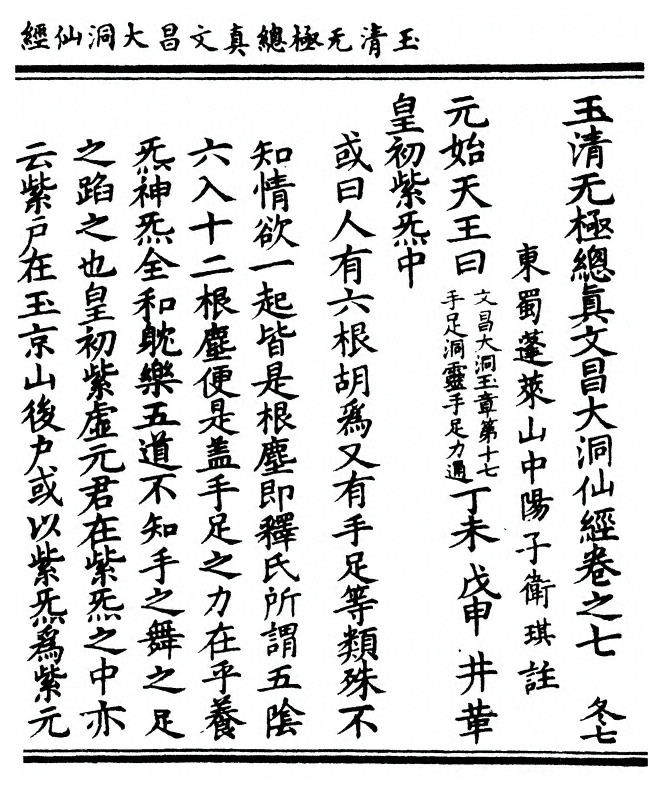 玉清无極總真文昌大洞仙經
玉清无極總眞文昌大洞仙經卷之七 冬七
東蜀蓬萊山中陽子衛琪註
元始天王曰
文昌大洞玉章第十七
手足洞靈手足力通
丁未 戊申 井 葦
皇初紫炁中
或曰人有六根胡爲又有手足等類殊不
知情欲一起皆是根塵即釋氏所謂五陰
六入十二根塵便是盖手足之力在乎養
炁神炁全和躭樂五道不知手之舞之足
之蹈之也皇初紫虛元君在紫炁之中亦
云紫戶在玉京山後户或以紫炁爲紫元